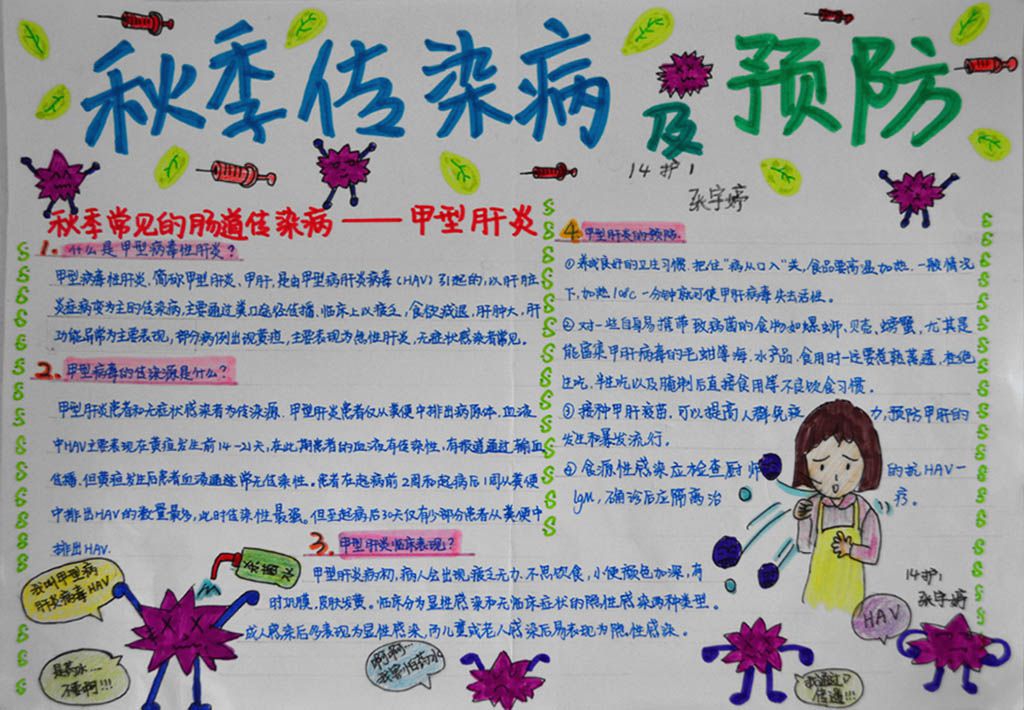 秋季传染病及预防
14护1
张宇婷
秋季常见的肠道传染病——甲型肝炎
1. 什么是甲型病毒性肝炎？
甲型病毒性肝炎，简称甲型肝炎、甲肝，是由甲型病肝炎病毒（HAV）引起的，以肝脏
炎症病变为主的传染病，主要通过粪口途径传播，临床上以疲乏，食欲减退，肝肿大，肝
功能异常为主要表现，部分病例出现黄疸，主要表现为急性肝炎，无症状感染者常见。
2. 甲型病毒的传染源是什么？
甲型肝炎患者和无症状感染者为传染源，甲型肝炎患者仅从粪便中排出病原体，血液
中HAV主要表现在黄疸发生前14-21天，在此期患者的血液有传染性，有报道通过输血
传播，但黄疸发生后患者血液通常无传染性。患者在起病前2周和起病后1周以粪便
中排出HAV的数量最多，此时传染性最强。但至起病后30天仅有少部分患者从粪便中
排出HAV.
3. 甲型肝炎临床表现？
甲型肝炎病初，病人会出现疲乏无力、不思饮食，小便颜色加深，有
时巩膜，皮肤发黄。临床分为显性感染和无临床症状的隐性感染两种类型。
成人感染后多表现为显性感染，而儿童或老人感染后易表现为隐性感染。
4 甲型肝炎的预防.
①养成良好的卫生习惯，把住"病从口入"关，食品要高温加热，一般情况
下，加热100℃一分钟就可使甲肝病毒失去活性。
②对一些自身易携带致病菌的食物如螺蛳、贝壳、螃蟹，尤其是
能富集甲肝病毒的毛蚶等海、水产品，食用时一定要煮熟蒸透，杜绝
生吃，半生吃以及腌制后直接食用等不良饮食习惯。
③接种甲肝疫苗，可以提高人群免疫力，预防甲肝的
发生和暴发流行。
④食源性感染应检查厨师的抗HAV-
IgM，确诊后应隔离治疗。
我叫甲型病
肝炎病毒HAV
是药水...
不要啊!!!
啊啊...
我害怕药水
我通过口
传播!!!
HAV
14护1
张宇婷